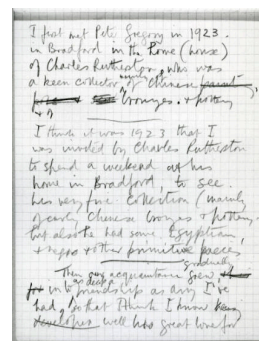 I first met Peter Gregory in 1923.
in Bradford in the home (house)
of Charles Rutherston, who was
a keen collector mainly of Chinese
bronzes. + pottery
I think it was 1923 that I
was invited by Charles Rutherston
to spend a weekend at his
home in Bradford, to see
his very fine collection (mainly
of early Chinese bronzes + pottery
but also he had some Egyptian,
+ negro + other primitive pieces
Then our acquaintance grew gradually
into friendship as any I've
had, so that I think I know
well his great love for